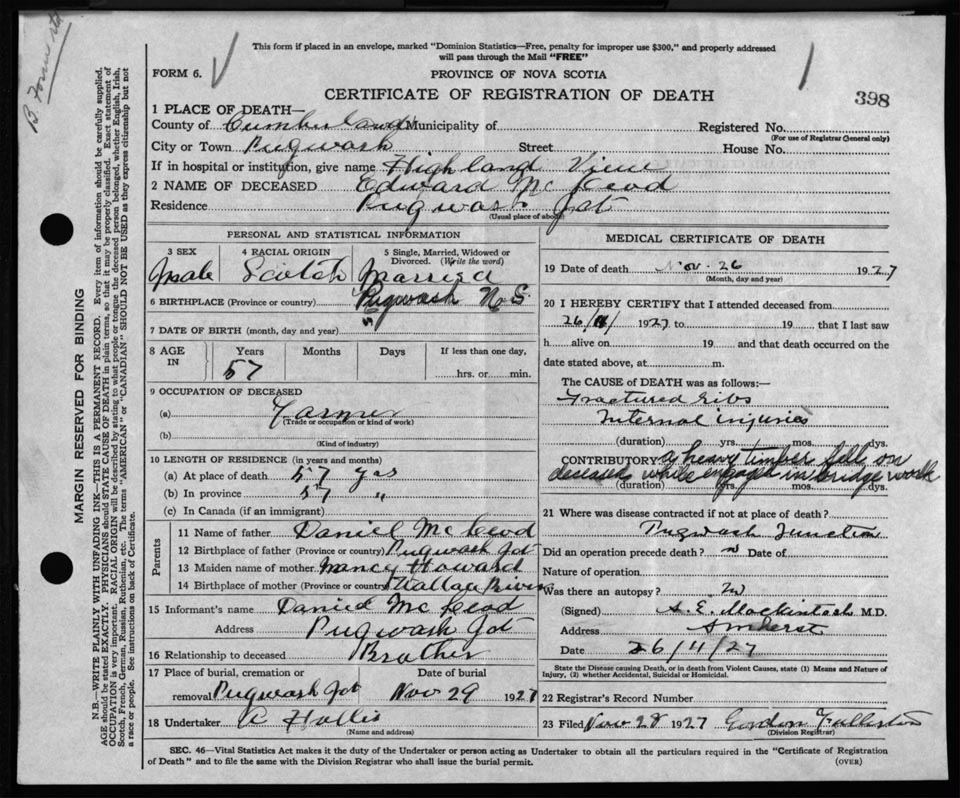 B
This form if placed in an envelope, marked "Dominion Statistics—Free, penalty for improper use $300," and properly addressed
will pass through the Mail "FREE"
FORM 6.
PROVINCE OF NOVA SCOTIA
CERTIFICATE OF REGISTRATION OF DEATH
398
1 PLACE OF DEATH—
County of Cumberland Municipality of Registered No.
(For use of Registrar General only)
City or Town Pugwash Street House No.
If in hospital or institution, give name Highland View
2 NAME OF DECEASED Edward McLeod
Residence Pugwash Jct
(Usual place of abode)
PERSONAL AND STATISTICAL INFORMATION
3 SEX 4 RACIAL ORIGIN 5 Single, Married, Widowed or
Divorced. (Write the word)
Male Scotch Married
6 BIRTHPLACE (Province or country) Pugwash N.S.
7 DATE OF BIRTH (month, day and year)
8 AGE IN Years Months Days If less than one day,
57 hrs. or min.
9 OCCUPATION OF DECEASED
(a) Farmer
(Trade or occupation or kind of work)
(b)
(Kind of industry)
10 LENGTH OF RESIDENCE (in years and months)
(a) At place of death 57 yrs
(b) In province 57 "
(c) In Canada (if an immigrant)
Parents
11 Name of father Daniel McLeod
12 Birthplace of father (Province or country) Pugwash Jct
13 Maiden name of mother Nancy Howard
14 Birthplace of mother (Province or country) Wallace River
15 Informant's name Daniel McLeod
Address Pugwash Jct
16 Relationship to deceased Brother
17 Place of burial, cremation or
removal Pugwash Jct Nov 29 1927
18 Undertaker Hollis
(Name and address)
MEDICAL CERTIFICATE OF DEATH
19 Date of death Nov. 26 1927
(Month, day and year)
20 I HEREBY CERTIFY that I attended deceased from
26/11/ 1927 to 19 that I last saw
h alive on 19 and that death occurred on the
date stated above, at m.
The CAUSE of DEATH was as follows:—
Fractured ribs
Internal injuries
(duration) yrs. mos. dys.
CONTRIBUTORY a heavy timber fell on
deceased while engaged in bridge work
(duration) yrs. mos. dys.
21 Where was disease contracted if not at place of death?
Pugwash Junction
Did an operation precede death? Date of
Nature of operation
Was there an autopsy?
(Signed) A. E. Mackintosh M.D.
Address Amherst
Date 26/11/27
State the Disease causing Death, or in death from Violent Causes, state (1) Means and Nature of
Injury, (2) whether Accidental, Suicidal or Homicidal.
22 Registrar's Record Number
23 Filed Nov 28 1927 Gordon Fullerton
(Division Registrar)
SEC. 46—Vital Statistics Act makes it the duty of the Undertaker or person acting as Undertaker to obtain all the particulars required in the "Certificate of Registration
of Death" and to file the same with the Division Registrar who shall issue the burial permit. (OVER)
MARGIN RESERVED FOR BINDING
N.B.—WRITE PLAINLY WITH UNFADING INK—THIS IS A PERMANENT RECORD. Every item of information should be carefully supplied.
AGE should be stated EXACTLY. PHYSICIANS should STATE CAUSE OF DEATH in plain terms, so that it may be properly classified. Exact statement of
OCCUPATION is very important. RACIAL ORIGIN will be described by stating to what people or tongue the deceased person belonged, whether English, Irish,
Scotch, French, German, Russian, Ruthenian, etc. The terms "AMERICAN" or "CANADIAN" SHOULD NOT BE USED as they express citizenship but not
a race or people. See instructions on back of Certificate.